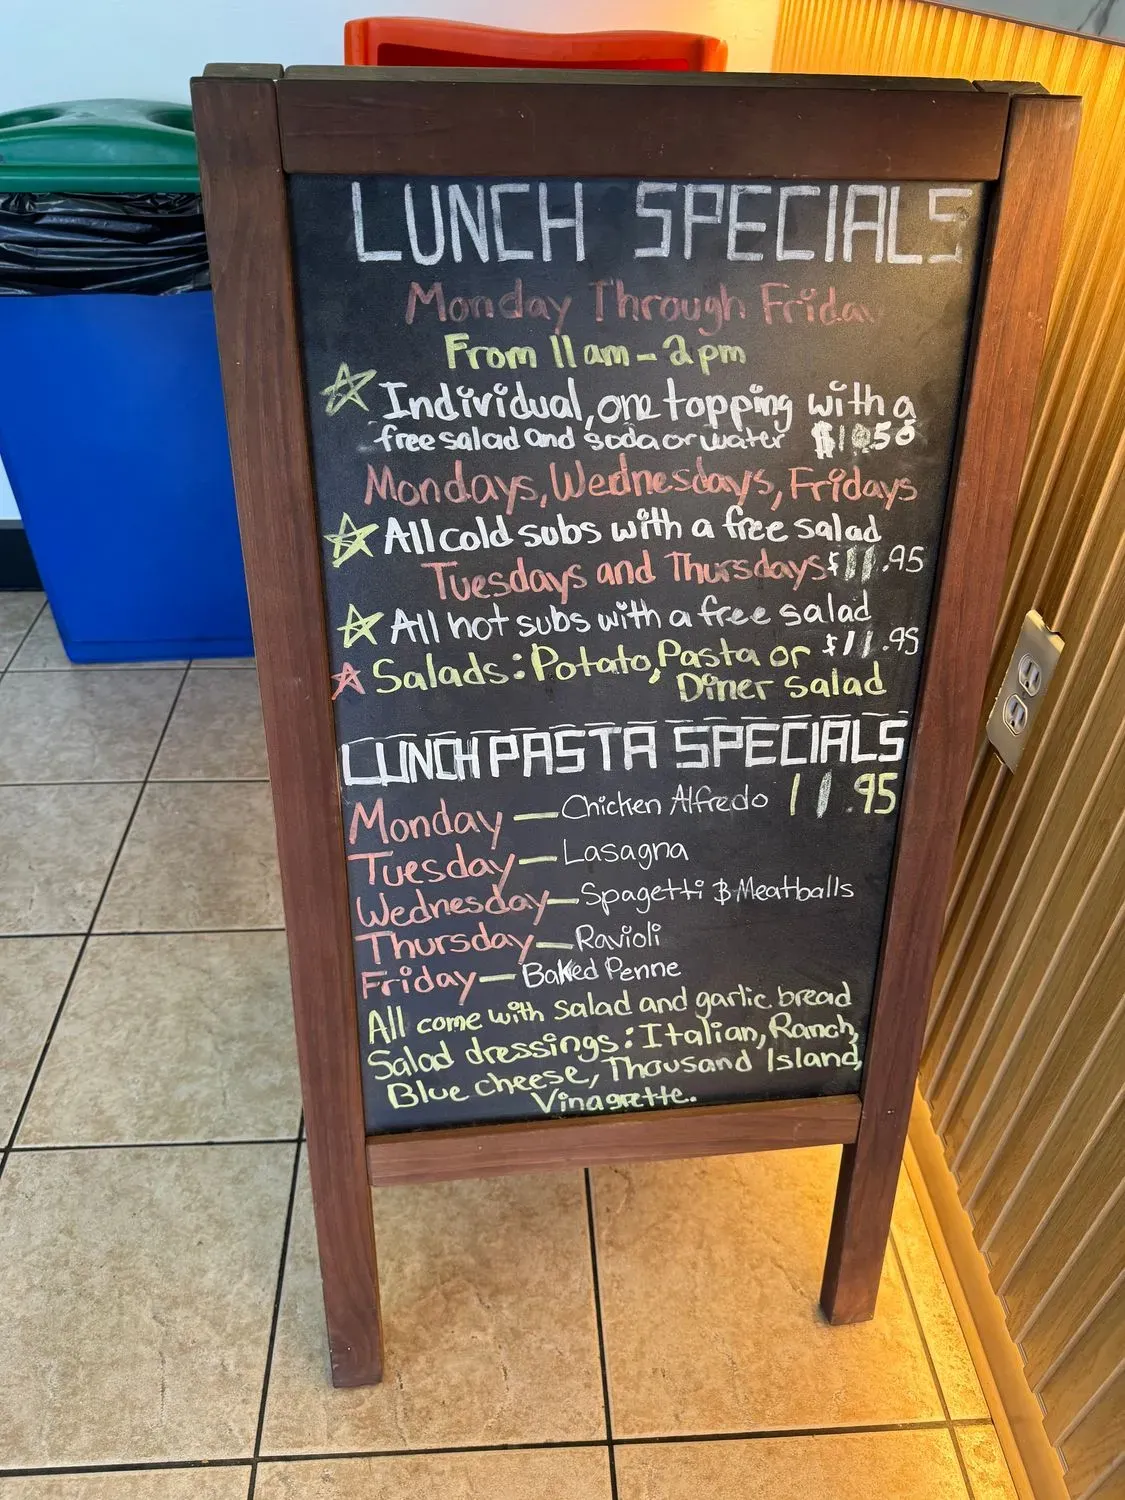 LUNCH SPECIALS
Monday Through Friday
From 11am-2pm
Individual, one topping with a
free salad and soda or water $10.50
Mondays, Wednesdays, Fridays
All cold subs with a free salad
Tuesdays and Thursdays $11.95
All hot subs with a free salad
$11.95
Salads: Potato, Pasta or
Diner salad
LUNCH PASTA SPECIALS
Monday — Chicken Alfredo 11.95
Tuesday — Lasagna
Wednesday — Spagetti & Meatballs
Thursday — Ravioli
Friday — Baked Penne
All come with salad and garlic bread
Salad dressings: Italian, Ranch,
Blue cheese, Thousand Island,
Vinagrette.